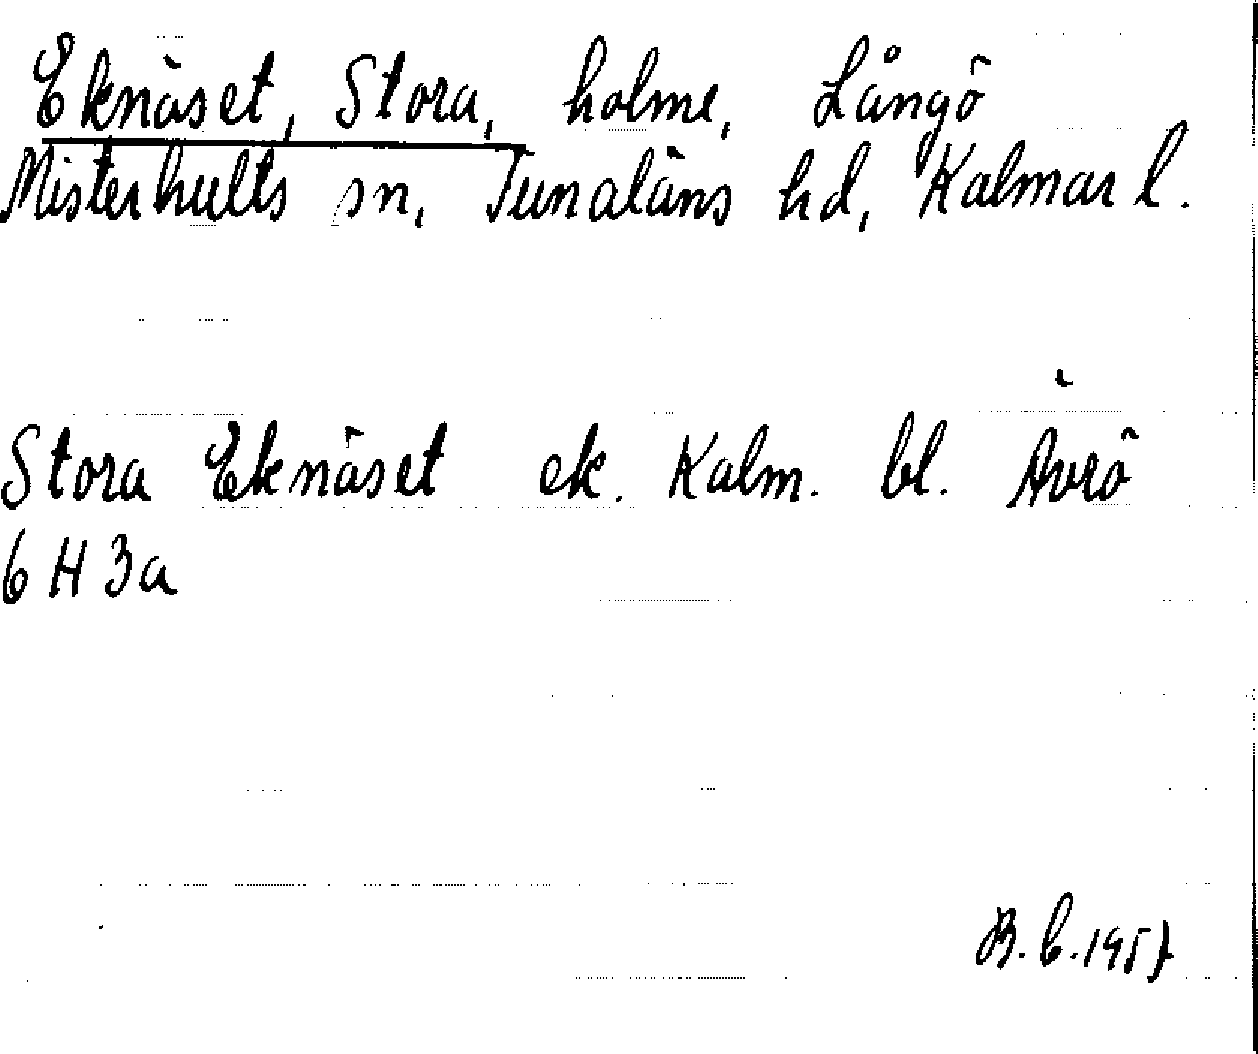 Eknäset, Stora, holme, Långö
Misterhults sn, Tunaläns hd, Kalmar l.
Stora Eknäset ek. Kalm. bl. Ävrö
6 H 3a
B. b. 1957